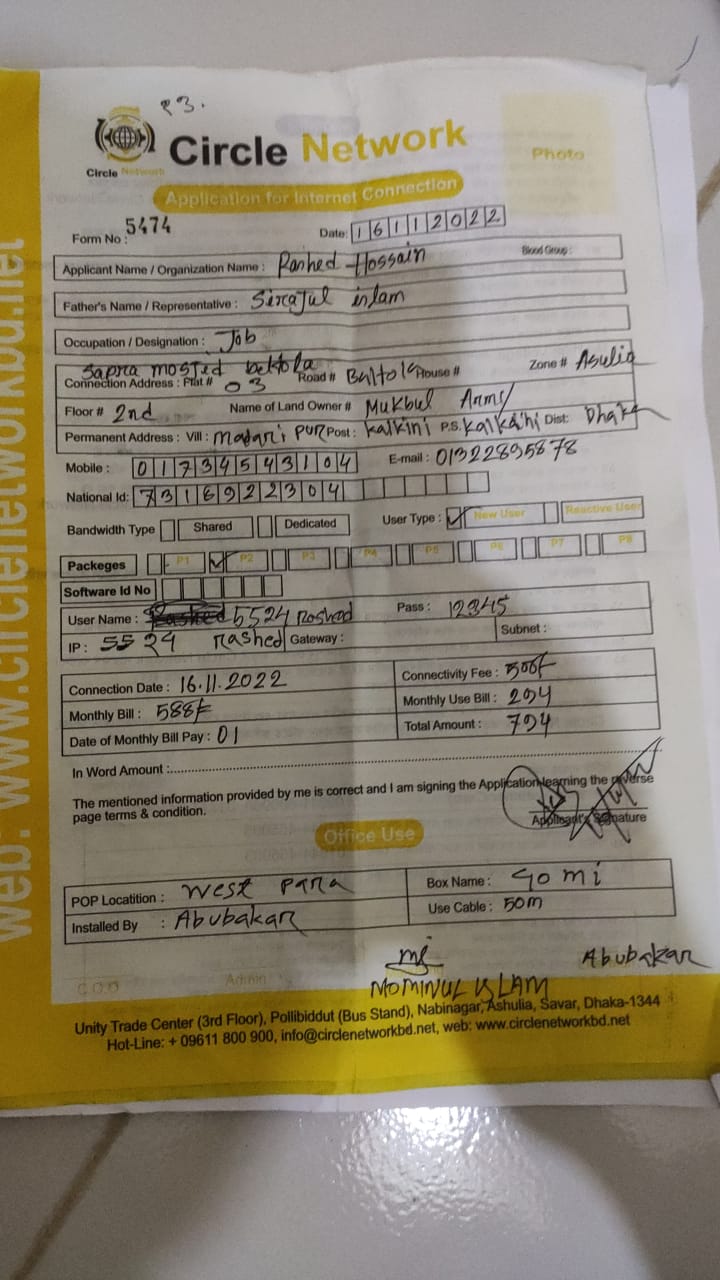 23.
Circle Network
Circle Network
Photo
Application for Internet Connection
Form No : 5474
Date: 16112022
Applicant Name / Organization Name : Rashed Hossain
Blood Group :
Father's Name / Representative : Sirajul islam
Occupation / Designation : Job
Connection Address : Flat # 03 Road # House # Zone # Asulia
Floor # 2nd Name of Land Owner # Mukbul
Permanent Address : Vill : madaripur Post : kalkini P.S. kalkini Dist: Dhaka
Mobile : 01734543104 E-mail : 01322895878
National Id: 7316922304
Bandwidth Type Shared Dedicated User Type : New User Reactive User
Packeges P1 P2 P3 P4 P5 P6 P7 P8
Software Id No
User Name : 5524 Rashed Pass : 12345
IP : 5524 Rashed Gateway : Subnet :
Connection Date : 16.11.2022 Connectivity Fee : 500/-
Monthly Bill : 588/- Monthly Use Bill : 294
Date of Monthly Bill Pay : 01 Total Amount : 794
In Word Amount :
The mentioned information provided by me is correct and I am signing the Application learning the reverse
page terms & condition.
Applicant's Signature
Office Use
POP Locatition : west para Box Name : 90 mi
Installed By : Abubakar Use Cable : 50m
Abubakar
MOMINUL ISLAM
C.O.O Admin
Unity Trade Center (3rd Floor), Pollibiddut (Bus Stand), Nabinagar, Ashulia, Savar, Dhaka-1344
Hot-Line: + 09611 800 900, info@circlenetworkbd.net, web: www.circlenetworkbd.net
web: www.circlenetworkbd.net